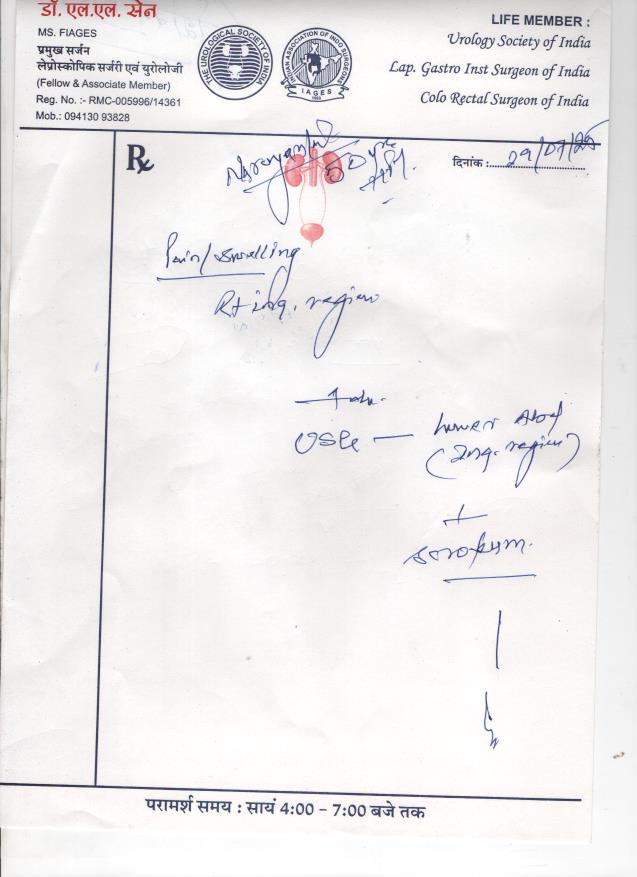 डॉ. एल.एल. सेन
MS. FIAGES
प्रमुख सर्जन
लेप्रोस्कोपिक सर्जरी एवं युरोलोजी
(Fellow & Associate Member)
Reg. No. :- RMC-005996/14361
Mob.: 094130 93828
THE UROLOGICAL SOCIETY OF INDIA
INDIAN ASSOCIATION OF INDO SURGEONS
IAGES
LIFE MEMBER :
Urology Society of India
Lap. Gastro Inst Surgeon of India
Colo Rectal Surgeon of India
Rx
दिनांक : 29/07/25
Pain/swelling
Rt inq. region
USG — Lower Abd
(Inq. region)
+
scrotum.
परामर्श समय : सायं 4:00 – 7:00 बजे तक